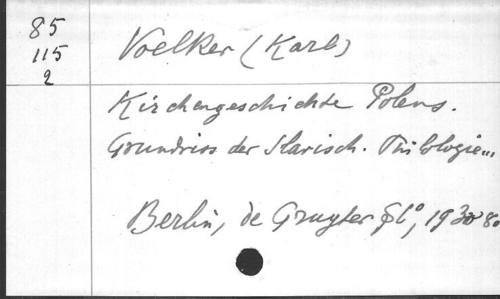 85
115
2
Voelker (Karl)
Kirchengeschichte Polens.
Grundriss der slavisch. Philologie...
Berlin, de Gruyter & Co, 1930 8o